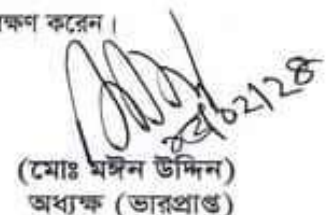 ক্ষণ করেন।
(মোঃ মঈন উদ্দিন)
অধ্যক্ষ (ভারপ্রাপ্ত)